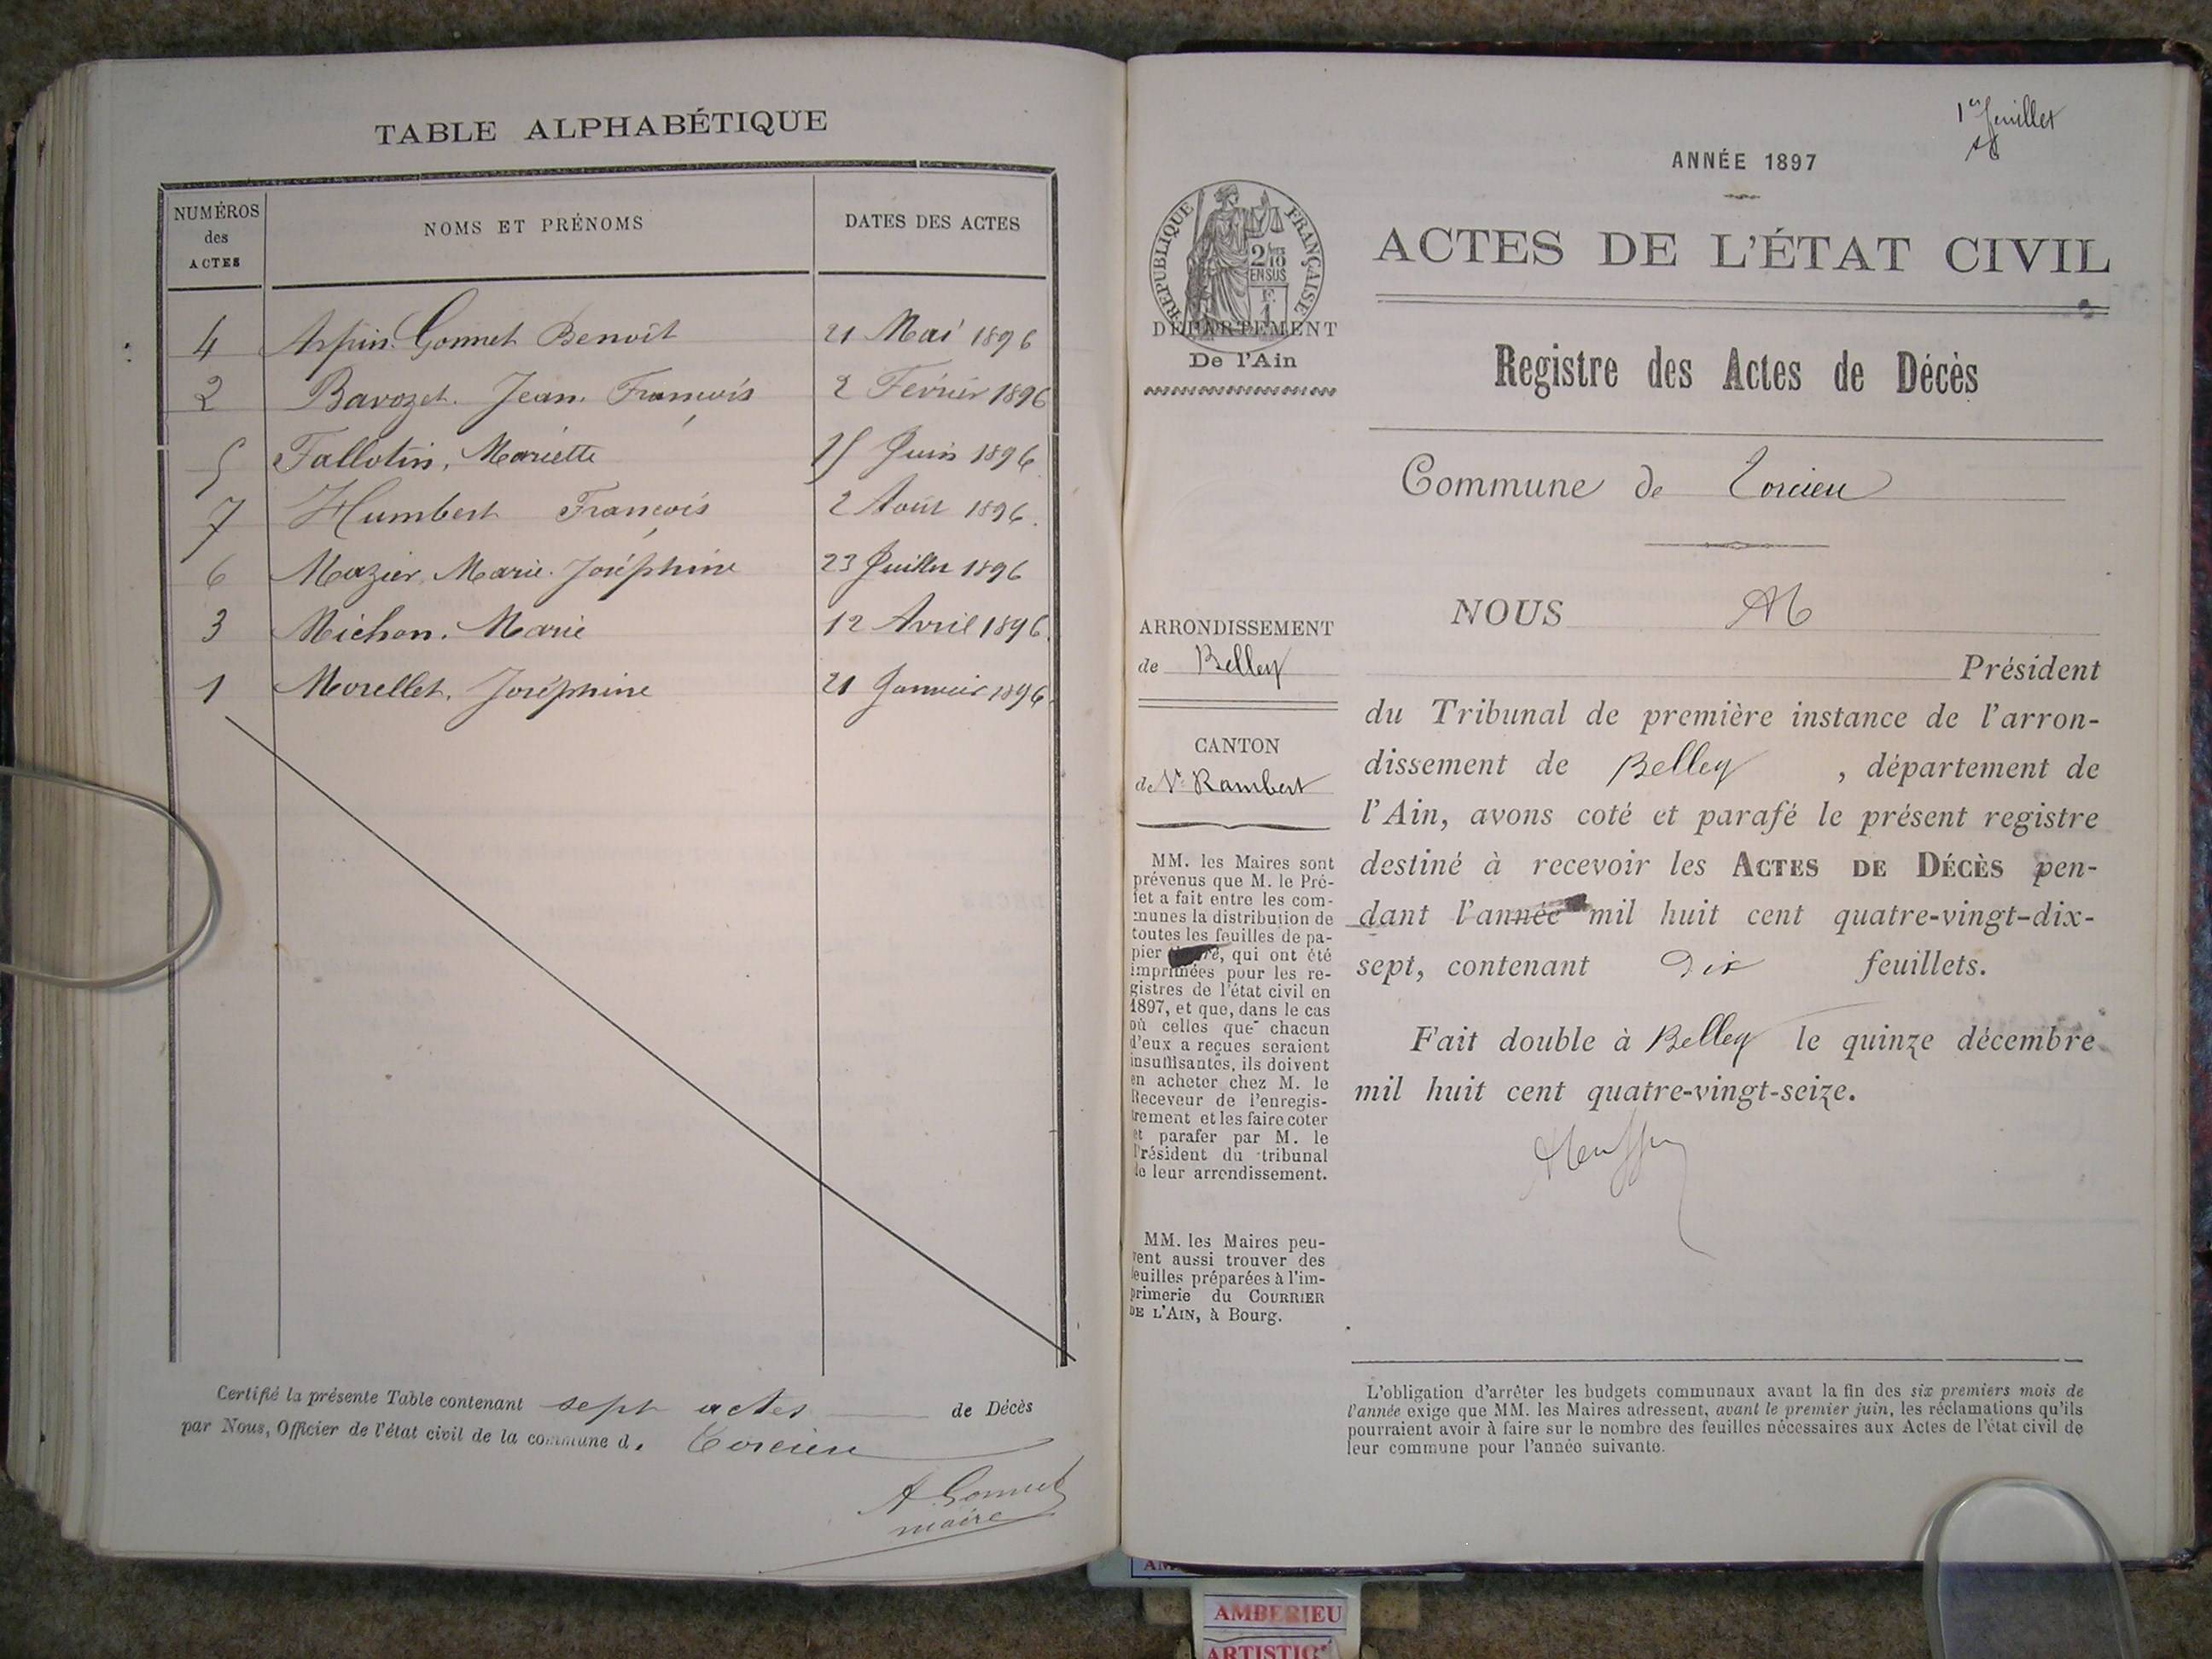 TABLE ALPHABÉTIQUE
NUMÉROS
des
ACTES
NOMS ET PRÉNOMS
DATES DES ACTES
4 Arpin Gonnet Benoît 21 Mai 1896
2 Bavozet. Jean. François 2 Février 1896
5 Fallotin, Mariette 15 Juin 1896
7 Humbert François 2 Août 1896.
6 Mazier, Marie. Joséphine 23 Juillet 1896
3 Michon. Marie 12 Avril 1896.
1 Morellet. Joséphine 21 Janvier 1896.
Certifié la présente Table contenant sept actes de Décès
par Nous, Officier de l'état civil de la commune d. Torcieu
A. Gonnet
maire
1er feuillet
ANNÉE 1897
RÉPUBLIQUE FRANÇAISE
2/10
EN SUS
DÉPARTEMENT
De l'Ain
ACTES DE L'ÉTAT CIVIL
Registre des Actes de Décès
Commune de Torcieu
ARRONDISSEMENT
de Belley
CANTON
de St Rambert
MM. les Maires sont
prévenus que M. le Pré-
fet a fait entre les com-
munes la distribution de
toutes les feuilles de pa-
pier qui ont été
imprimées pour les re-
gistres de l'état civil en
1897, et que, dans le cas
où celles que chacun
d'eux a reçues seraient
insuffisantes, ils doivent
en acheter chez M. le
Receveur de l'enregis-
trement et les faire coter
et parafer par M. le
Président du tribunal
de leur arrondissement.
MM. les Maires peu-
vent aussi trouver des
feuilles préparées à l'im-
primerie du COURRIER
DE L'AIN, à Bourg.
NOUS
Président
du Tribunal de première instance de l'arron-
dissement de Belley, département de
l'Ain, avons coté et parafé le présent registre
destiné à recevoir les ACTES DE DÉCÈS pen-
dant l'année mil huit cent quatre-vingt-dix-
sept, contenant Dix feuillets.
Fait double à Belley le quinze décembre
mil huit cent quatre-vingt-seize.
L'obligation d'arrêter les budgets communaux avant la fin des six premiers mois de
l'année exige que MM. les Maires adressent, avant le premier juin, les réclamations qu'ils
pourraient avoir à faire sur le nombre des feuilles nécessaires aux Actes de l'état civil de
leur commune pour l'année suivante.
AMBERIEU
ARTISTIC